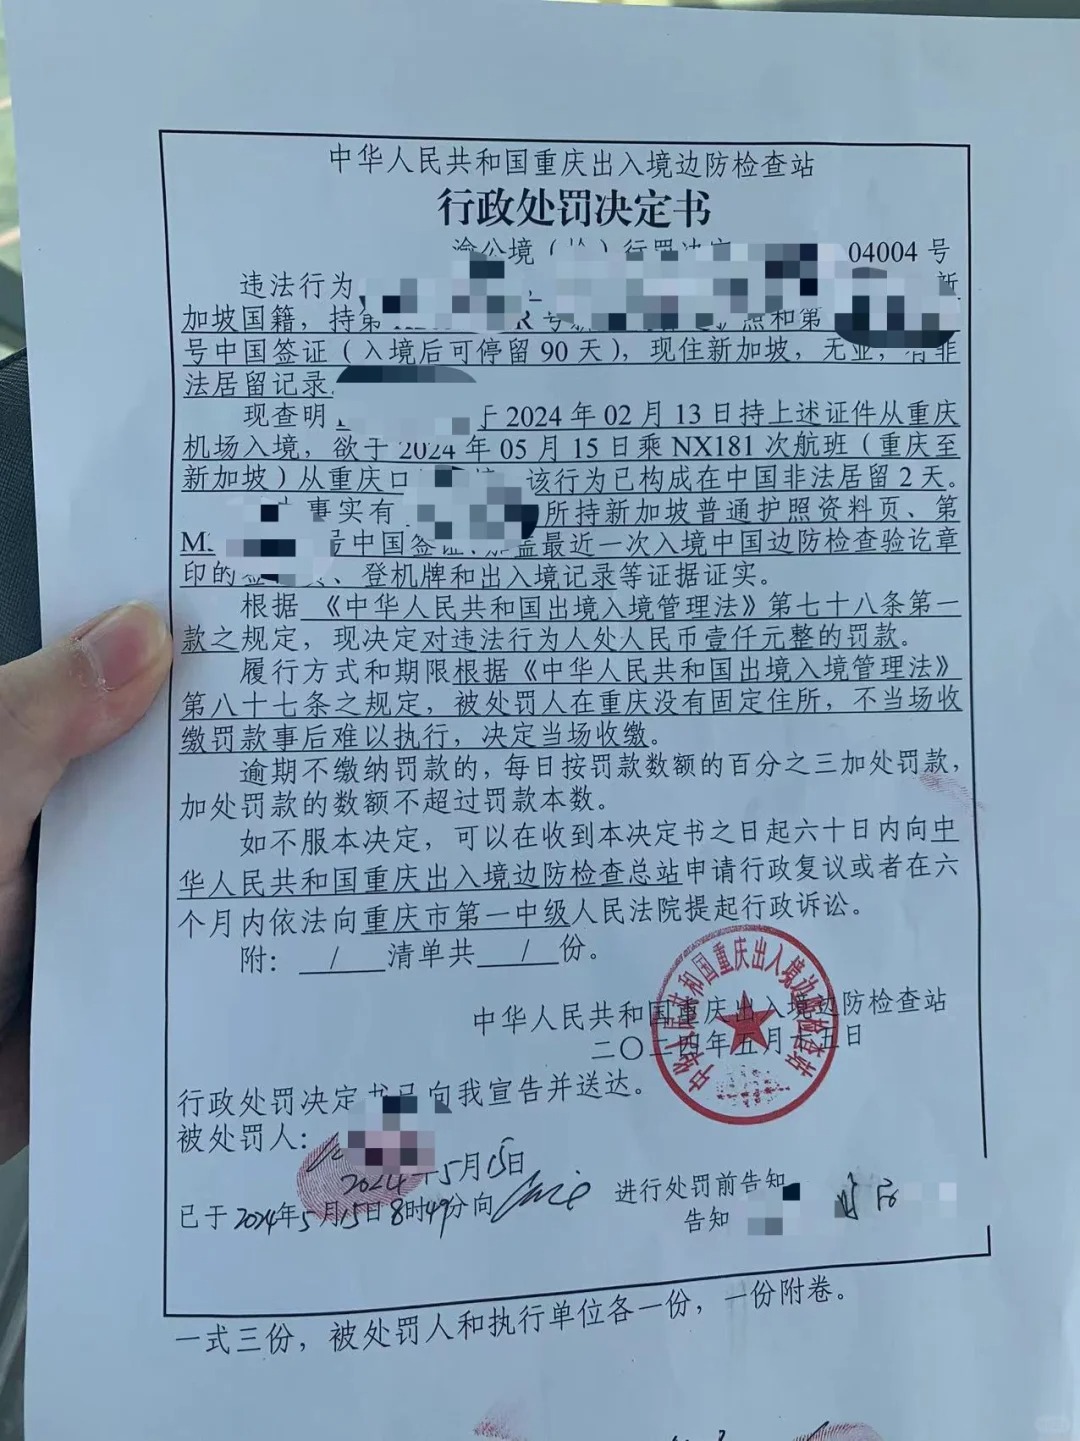 中华人民共和国重庆出入境边防检查站
行政处罚决定书
渝公境（ ）行罚决 04004 号
违法行为 新
加坡国籍，持第 R 号 护照和第
号中国签证（入境后可停留 90 天），现住新加坡，无业，有非
法居留记录
现查明 于 2024 年 02 月 13 日持上述证件从重庆
机场入境，欲于 2024 年 05 月 15 日乘 NX181 次航班（重庆至
新加坡）从重庆口 该行为已构成在中国非法居留 2 天。
事实有 所持新加坡普通护照资料页、第
M 号中国签证、加盖最近一次入境中国边防检查验讫章
印的 、登机牌和出入境记录等证据证实。
根据 《中华人民共和国出境入境管理法》第七十八条第一
款之规定，现决定对违法行为人处人民币壹仟元整的罚款。
履行方式和期限根据《中华人民共和国出境入境管理法》
第八十七条之规定，被处罚人在重庆没有固定住所，不当场收
缴罚款事后难以执行，决定当场收缴。
逾期不缴纳罚款的，每日按罚款数额的百分之三加处罚款，
加处罚款的数额不超过罚款本数。
如不服本决定，可以在收到本决定书之日起六十日内向中
华人民共和国重庆出入境边防检查总站申请行政复议或者在六
个月内依法向重庆市第一中级人民法院提起行政诉讼。
附： / 清单共 / 份。
中华人民共和国重庆出入境边防检查站
二〇二四年五月十五日
中华人民共和国重庆出入境边防检查站
行政处罚决定书已向我宣告并送达。
被处罚人：
2024年5月15日
已于2024年5月15日8时49分向 进行处罚前告知
告知
一式三份，被处罚人和执行单位各一份，一份附卷。